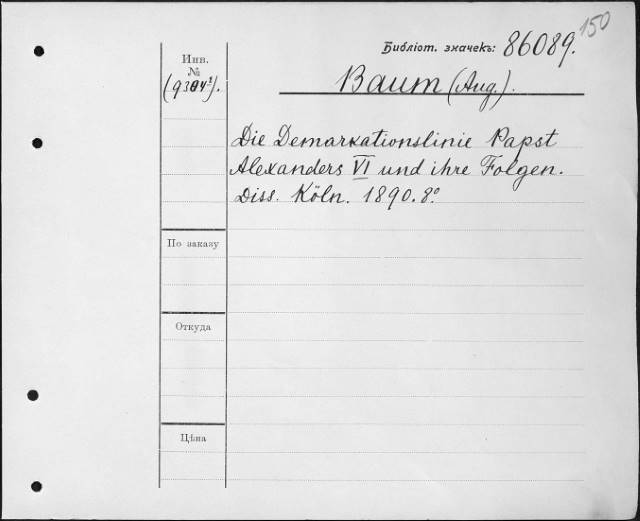 150
Библіот. значекъ: 86089.
Инв.
№
Baum (Aug.).
Die Demarkationslinie Papst
Alexanders VI und ihre Folgen.
Diss. Köln. 1890. 8º
По заказу
Откуда
Цѣна